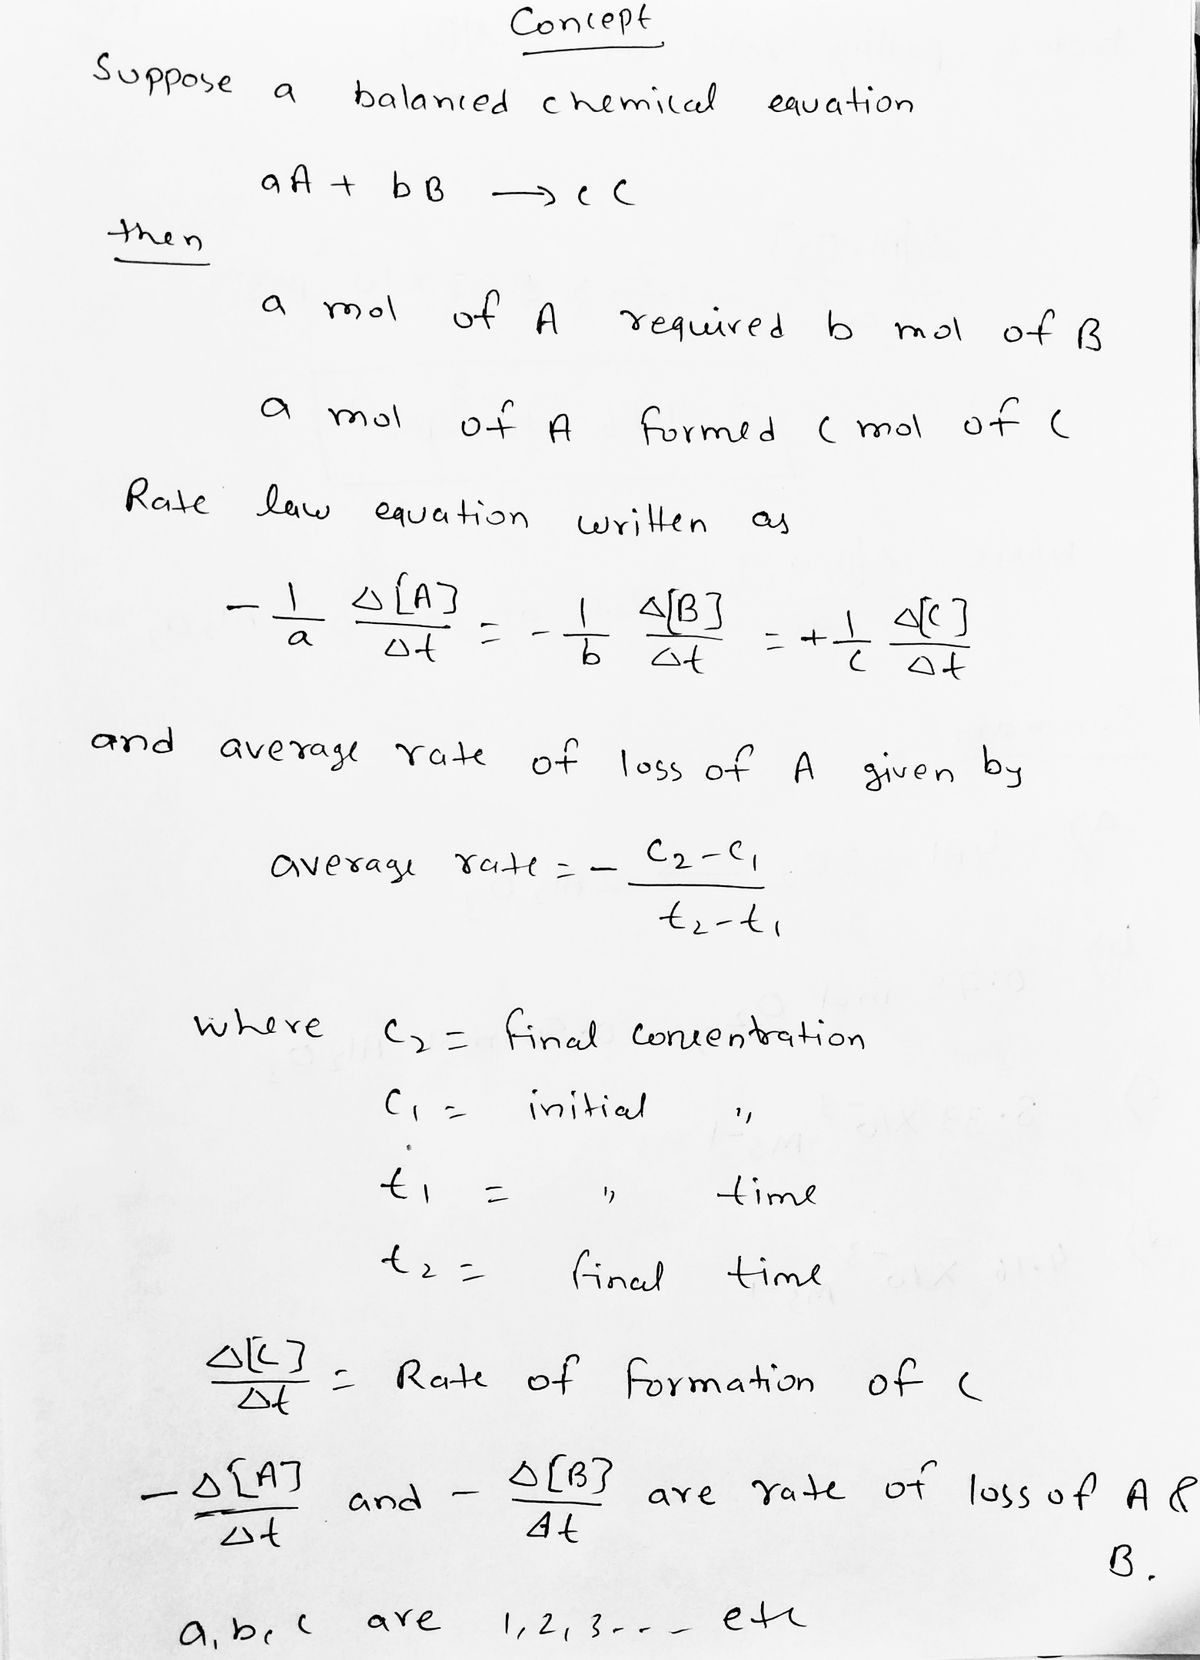 Concept
Suppose a balanced chemical equation
aA + bB → cC
then
a mol of A required b mol of B
a mol of A formed c mol of C
Rate law equation written as
- 1/a Δ[A]/Δt = - 1/b Δ[B]/Δt = + 1/c Δ[C]/Δt
and average rate of loss of A given by
average rate = - C2-C1/t2-t1
where C2 = final concentration
C1 = initial "
t1 = " time
t2 = final time
Δ[C]/Δt = Rate of formation of C
- Δ[A]/Δt and - Δ[B]/Δt are rate of loss of A &
B.
a, b, c are 1, 2, 3 - - - etc